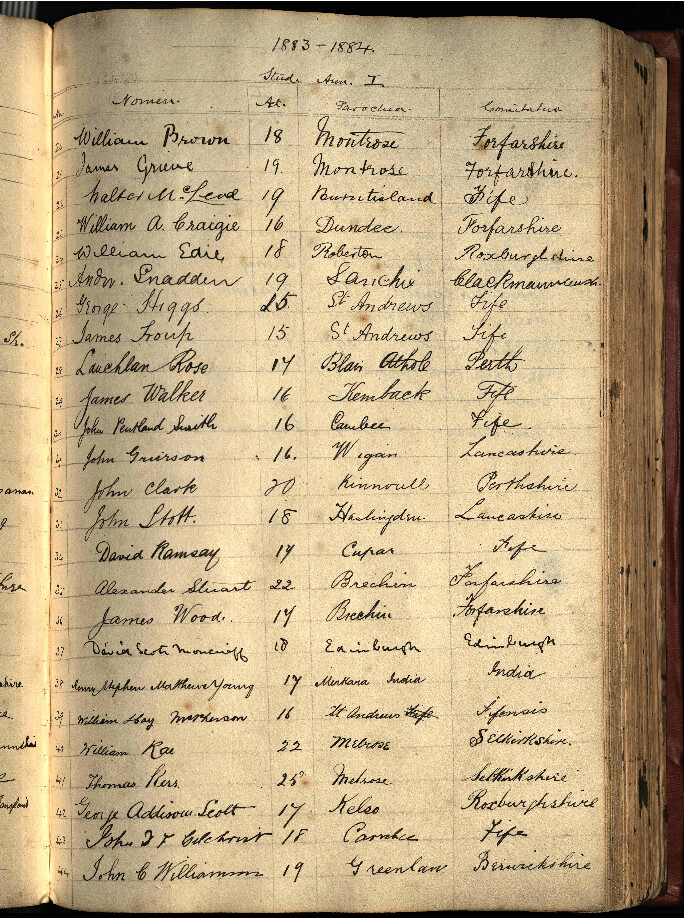 1883-1884.
Stud. Ann. I
No. Nomen. Aet. Parochia Comitatus
20 William Brown 18 Montrose Forfarshire
21 James Grieve 19. Montrose Forfarshire.
22 Walter McLeod 19 Burntisland Fife
23 William A. Craigie 16 Dundee. Forfarshire
24 William Edie 18 Roberton Roxburghshire
25 Andw. Snadden 19 Sauchie
26 George Higgs. 15 St Andrews Fife
27 James Troup 15 St Andrews Fife
28 Lauchlan Rose 17 Blair Athole Perth
29 James Walker 16 Kemback Fife
30 John Pentland Smith 16 Carnbee Fife.
31 John Grierson 16. Wigan Lancashire.
32 John Clark 20 Kinnoull Perthshire
33 John Stott. 18 Haslingden. Lancashire
34 David Ramsay 17 Cupar Fife
35 Alexander Stuart 22 Brechin Forfarshire
36 James Wood. 17 Brechin Forfarshire
37 David Scott Moncrieff 18 Edinburgh Edinburgh
38 Henry Stephen Matthew Young 17 Merkara India India
39 William Hay McPherson 16 St Andrews Fife Fifensis
40 William Rae 22 Melrose Selkirkshire.
41 Thomas Kerr 25 Melrose Selkirkshire
42 George Addison Scott 17 Kelso Roxburghshire
43 John F Gilchrist 18 Carnbee Fife
44 John C Williamson 19 Greenlaw Berwickshire